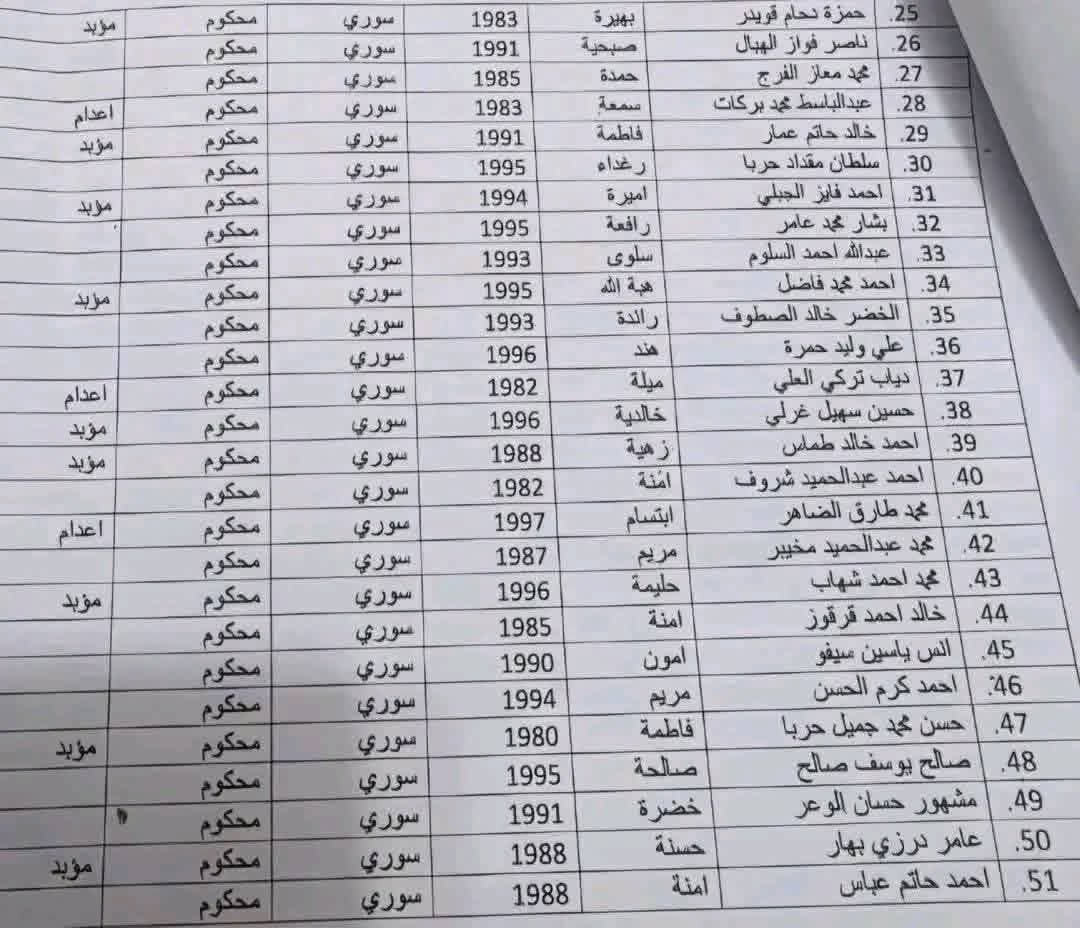 25. حمزة دحام قويدر بهيرة 1983 سوري محكوم مؤبد
26. ناصر فواز الهبال صبحية 1991 سوري محكوم
27. محمد معاز الفرج حمدة 1985 سوري محكوم
28. عبدالباسط محمد بركات سمعة 1983 سوري محكوم اعدام
29. خالد حاتم عمار فاطمة 1991 سوري محكوم مؤبد
30. سلطان مقداد حربا رغداء 1995 سوري محكوم
31. احمد فايز الجبلي اميرة 1994 سوري محكوم مؤبد
32. بشار محمد عامر رافعة 1995 سوري محكوم
33. عبدالله احمد السلوم سلوى 1993 سوري محكوم
34. احمد محمد فاضل هبة الله 1995 سوري محكوم مؤبد
35. الخضر خالد الصطوف رائدة 1993 سوري محكوم
36. علي وليد حمرة هند 1996 سوري محكوم
37. دياب تركي العلي ميلة 1982 سوري محكوم اعدام
38. حسين سهيل غرلي خالدية 1996 سوري محكوم مؤبد
39. احمد خالد طماس زهية 1988 سوري محكوم مؤبد
40. احمد عبدالحميد شروف امنة 1982 سوري محكوم
41. محمد طارق الضاهر ابتسام 1997 سوري محكوم اعدام
42. محمد عبدالحميد مخيبر مريم 1987 سوري محكوم
43. محمد احمد شهاب حليمة 1996 سوري محكوم مؤبد
44. خالد احمد قرقوز امنة 1985 سوري محكوم
45. انس ياسين سيفو امون 1990 سوري محكوم
46. احمد كرم الحسن مريم 1994 سوري محكوم
47. حسن محمد جميل حربا فاطمة 1980 سوري محكوم مؤبد
48. صالح يوسف صالح صالحة 1995 سوري محكوم
49. مشهور حسان الوعر خضرة 1991 سوري محكوم
50. عامر درزي بهار حسنة 1988 سوري محكوم مؤبد
51. احمد حاتم عباس امنة 1988 سوري محكوم